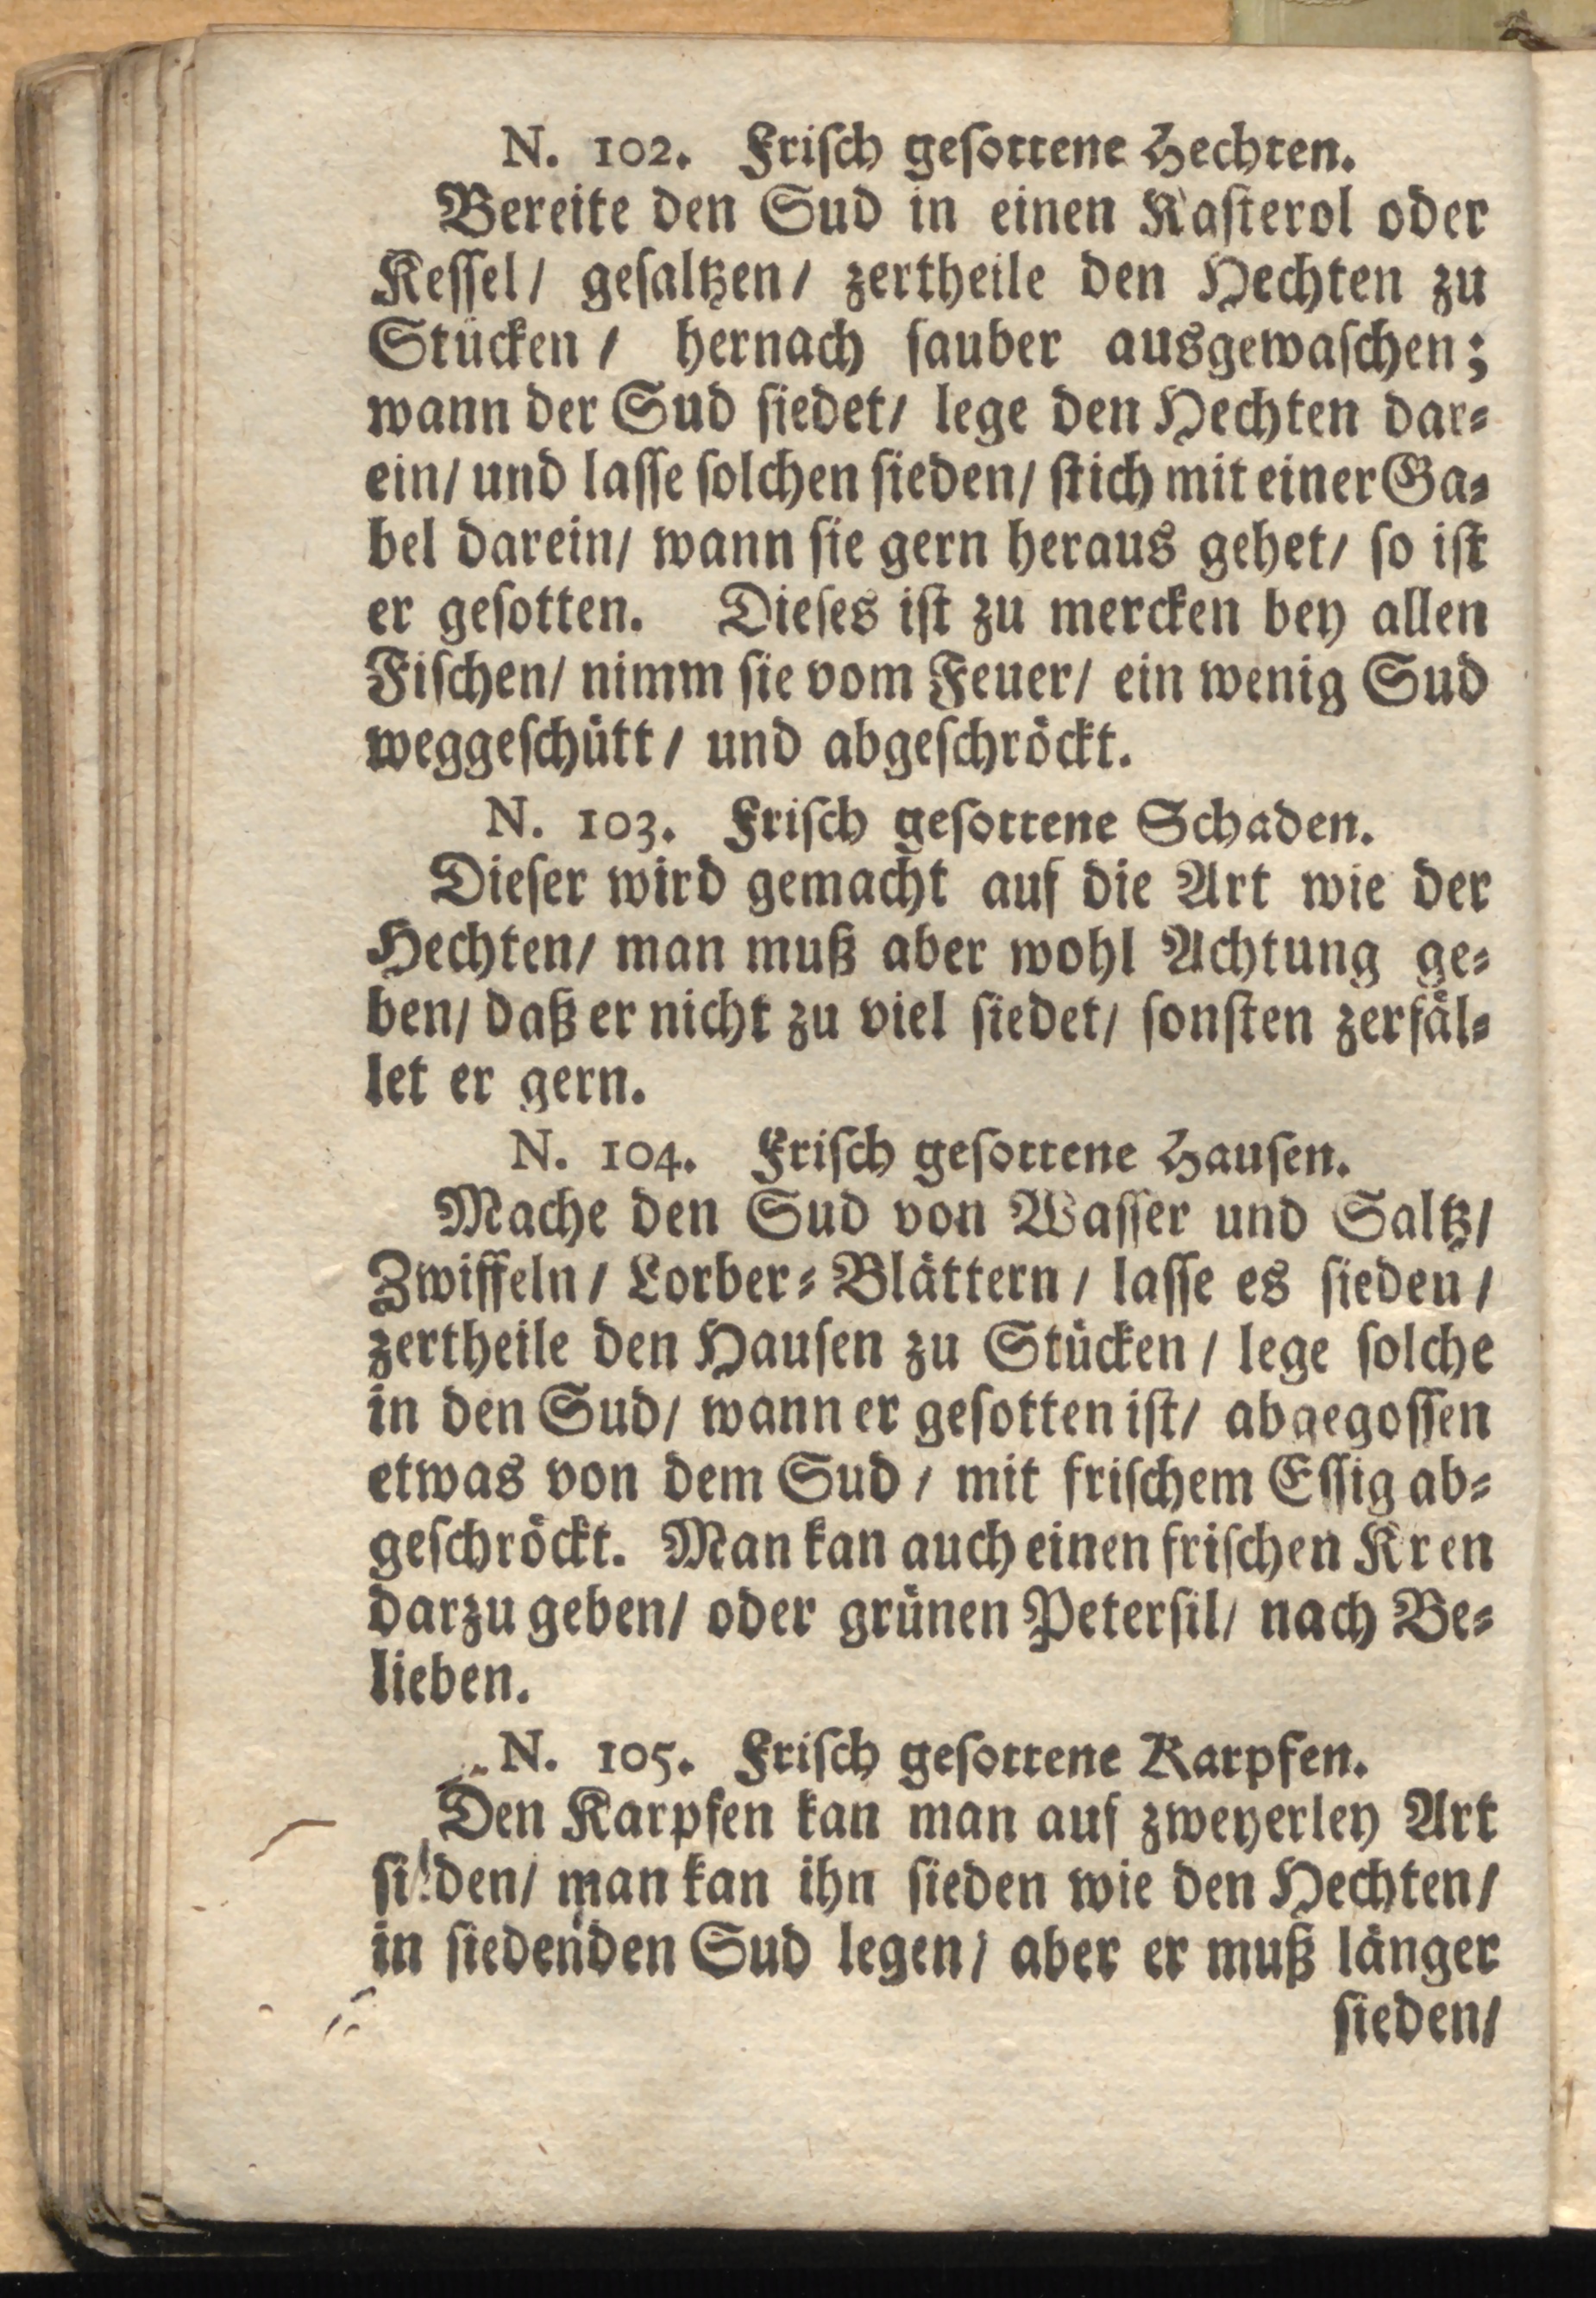 N. 102. Friſch geſottene Hechten.
Bereite den Sud in einen Kaſterol oder
Keſſel/ geſaltzen/ zertheile den Hechten zu
Stücken/ hernach ſauber ausgewaſchen;
wann der Sud ſiedet/ lege den Hechten dar⸗
ein/ und laſſe ſolchen ſieden/ ſtich mit einer Ga⸗
bel darein/ wann ſie gern heraus gehet/ ſo iſt
er geſotten. Dieſes iſt zu mercken bey allen
Fiſchen/ nimm ſie vom Feuer/ ein wenig Sud
weggeſchütt/ und abgeſchröckt.
N. 103. Friſch geſottene Schaden.
Dieſer wird gemacht auf die Art wie der
Hechten/ man muß aber wohl Achtung ge⸗
ben/ daß er nicht zu viel ſiedet/ ſonſten zerfäl⸗
let er gern.
N. 104. Friſch geſottene Hauſen.
Mache den Sud von Waſſer und Saltz/
Zwiffeln/ Lorber⸗Blättern/ laſſe es ſieden/
zertheile den Hauſen zu Stücken/ lege ſolche
in den Sud/ wann er geſotten iſt/ abgegoſſen
etwas von dem Sud/ mit friſchem Eſſig ab⸗
geſchröckt. Man kan auch einen friſchen Kren
darzu geben/ oder grünen Peterſil/ nach Be⸗
lieben.
N. 105. Friſch geſottene Karpfen.
Den Karpfen kan man auf zweyerley Art
ſieden/ man kan ihn ſieden wie den Hechten/
in ſiedenden Sud legen/ aber er muß länger
ſieden/